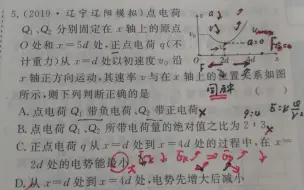 5. (2019·辽宁辽阳模拟)点电荷
Q₁、Q₂ 分别固定在 x 轴上的原点
O 处和 x=5d 处,正点电荷 q(不
计重力)从 x=d 处以初速度 v₀ 沿
x 轴正方向运动,其速率 v 与在 x 轴上的位置关系如图
所示,则下列判断正确的是
A. 点电荷 Q₁ 带负电荷、Q₂ 带正电荷
B. 点电荷 Q₁、Q₂ 所带电荷量的绝对值之比为 2:3
C. 正点电荷 q 从 x=d 处到 x=4d 处的过程中,在 x=
2d 处的电势能最小
D. 从 x=d 处到 x=4d 处,电势先增大后减小